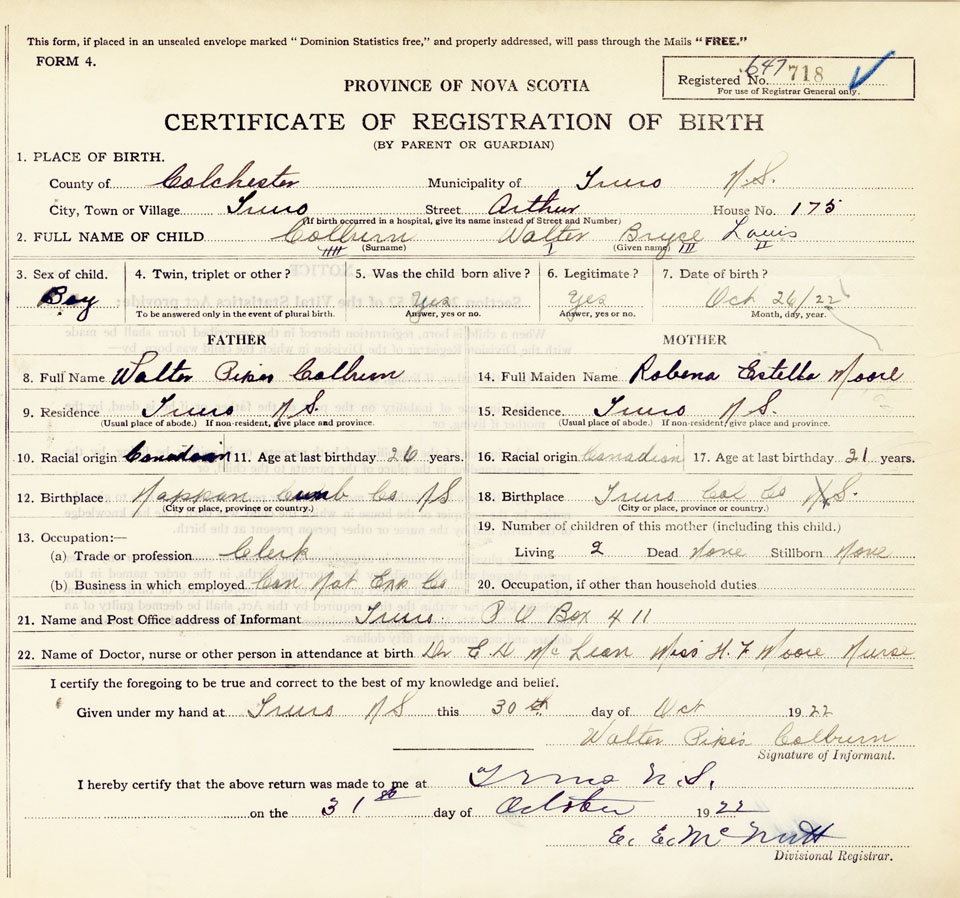 This form, if placed in an unsealed envelope marked "Dominion Statistics free," and properly addressed, will pass through the Mails "FREE."
FORM 4.
Registered No. 647 718
For use of Registrar General only.
PROVINCE OF NOVA SCOTIA
CERTIFICATE OF REGISTRATION OF BIRTH
(BY PARENT OR GUARDIAN)
1. PLACE OF BIRTH.
County of Colchester Municipality of Truro N.S.
City, Town or Village Truro Street Arthur House No. 175
(If birth occurred in a hospital, give its name instead of Street and Number)
2. FULL NAME OF CHILD Colburn Walter Bryce Louis
(Surname) IIII I (Given name) III II
3. Sex of child. 4. Twin, triplet or other? 5. Was the child born alive? 6. Legitimate? 7. Date of birth?
Boy Yes Yes Oct 26/22
To be answered only in the event of plural birth. Answer, yes or no. Answer, yes or no. Month, day, year.
FATHER MOTHER
8. Full Name Walter Pipes Colburn 14. Full Maiden Name Robena Estella Moore
9. Residence Truro N.S. 15. Residence. Truro N.S.
(Usual place of abode.) If non-resident, give place and province. (Usual place of abode.) If non-resident, give place and province.
10. Racial origin Canadian 11. Age at last birthday 26 years. 16. Racial origin Canadian 17. Age at last birthday 21 years.
12. Birthplace Nappan Cumb Co NS 18. Birthplace Truro Col Co N.S.
(City or place, province or country.) (City or place, province or country.)
13. Occupation:— 19. Number of children of this mother (including this child.)
(a) Trade or profession Clerk Living 2 Dead None Stillborn None
(b) Business in which employed Can Nat Exp Co 20. Occupation, if other than household duties
21. Name and Post Office address of Informant Truro. P O Box 411
22. Name of Doctor, nurse or other person in attendance at birth Dr E. D McLean Miss H. F Moore Nurse
I certify the foregoing to be true and correct to the best of my knowledge and belief.
Given under my hand at Truro NS this 30th day of Oct 1922
Walter Pipes Colburn
Signature of Informant.
I hereby certify that the above return was made to me at Truro N.S.
on the 31st day of October 1922
E. E. McNutt
Divisional Registrar.